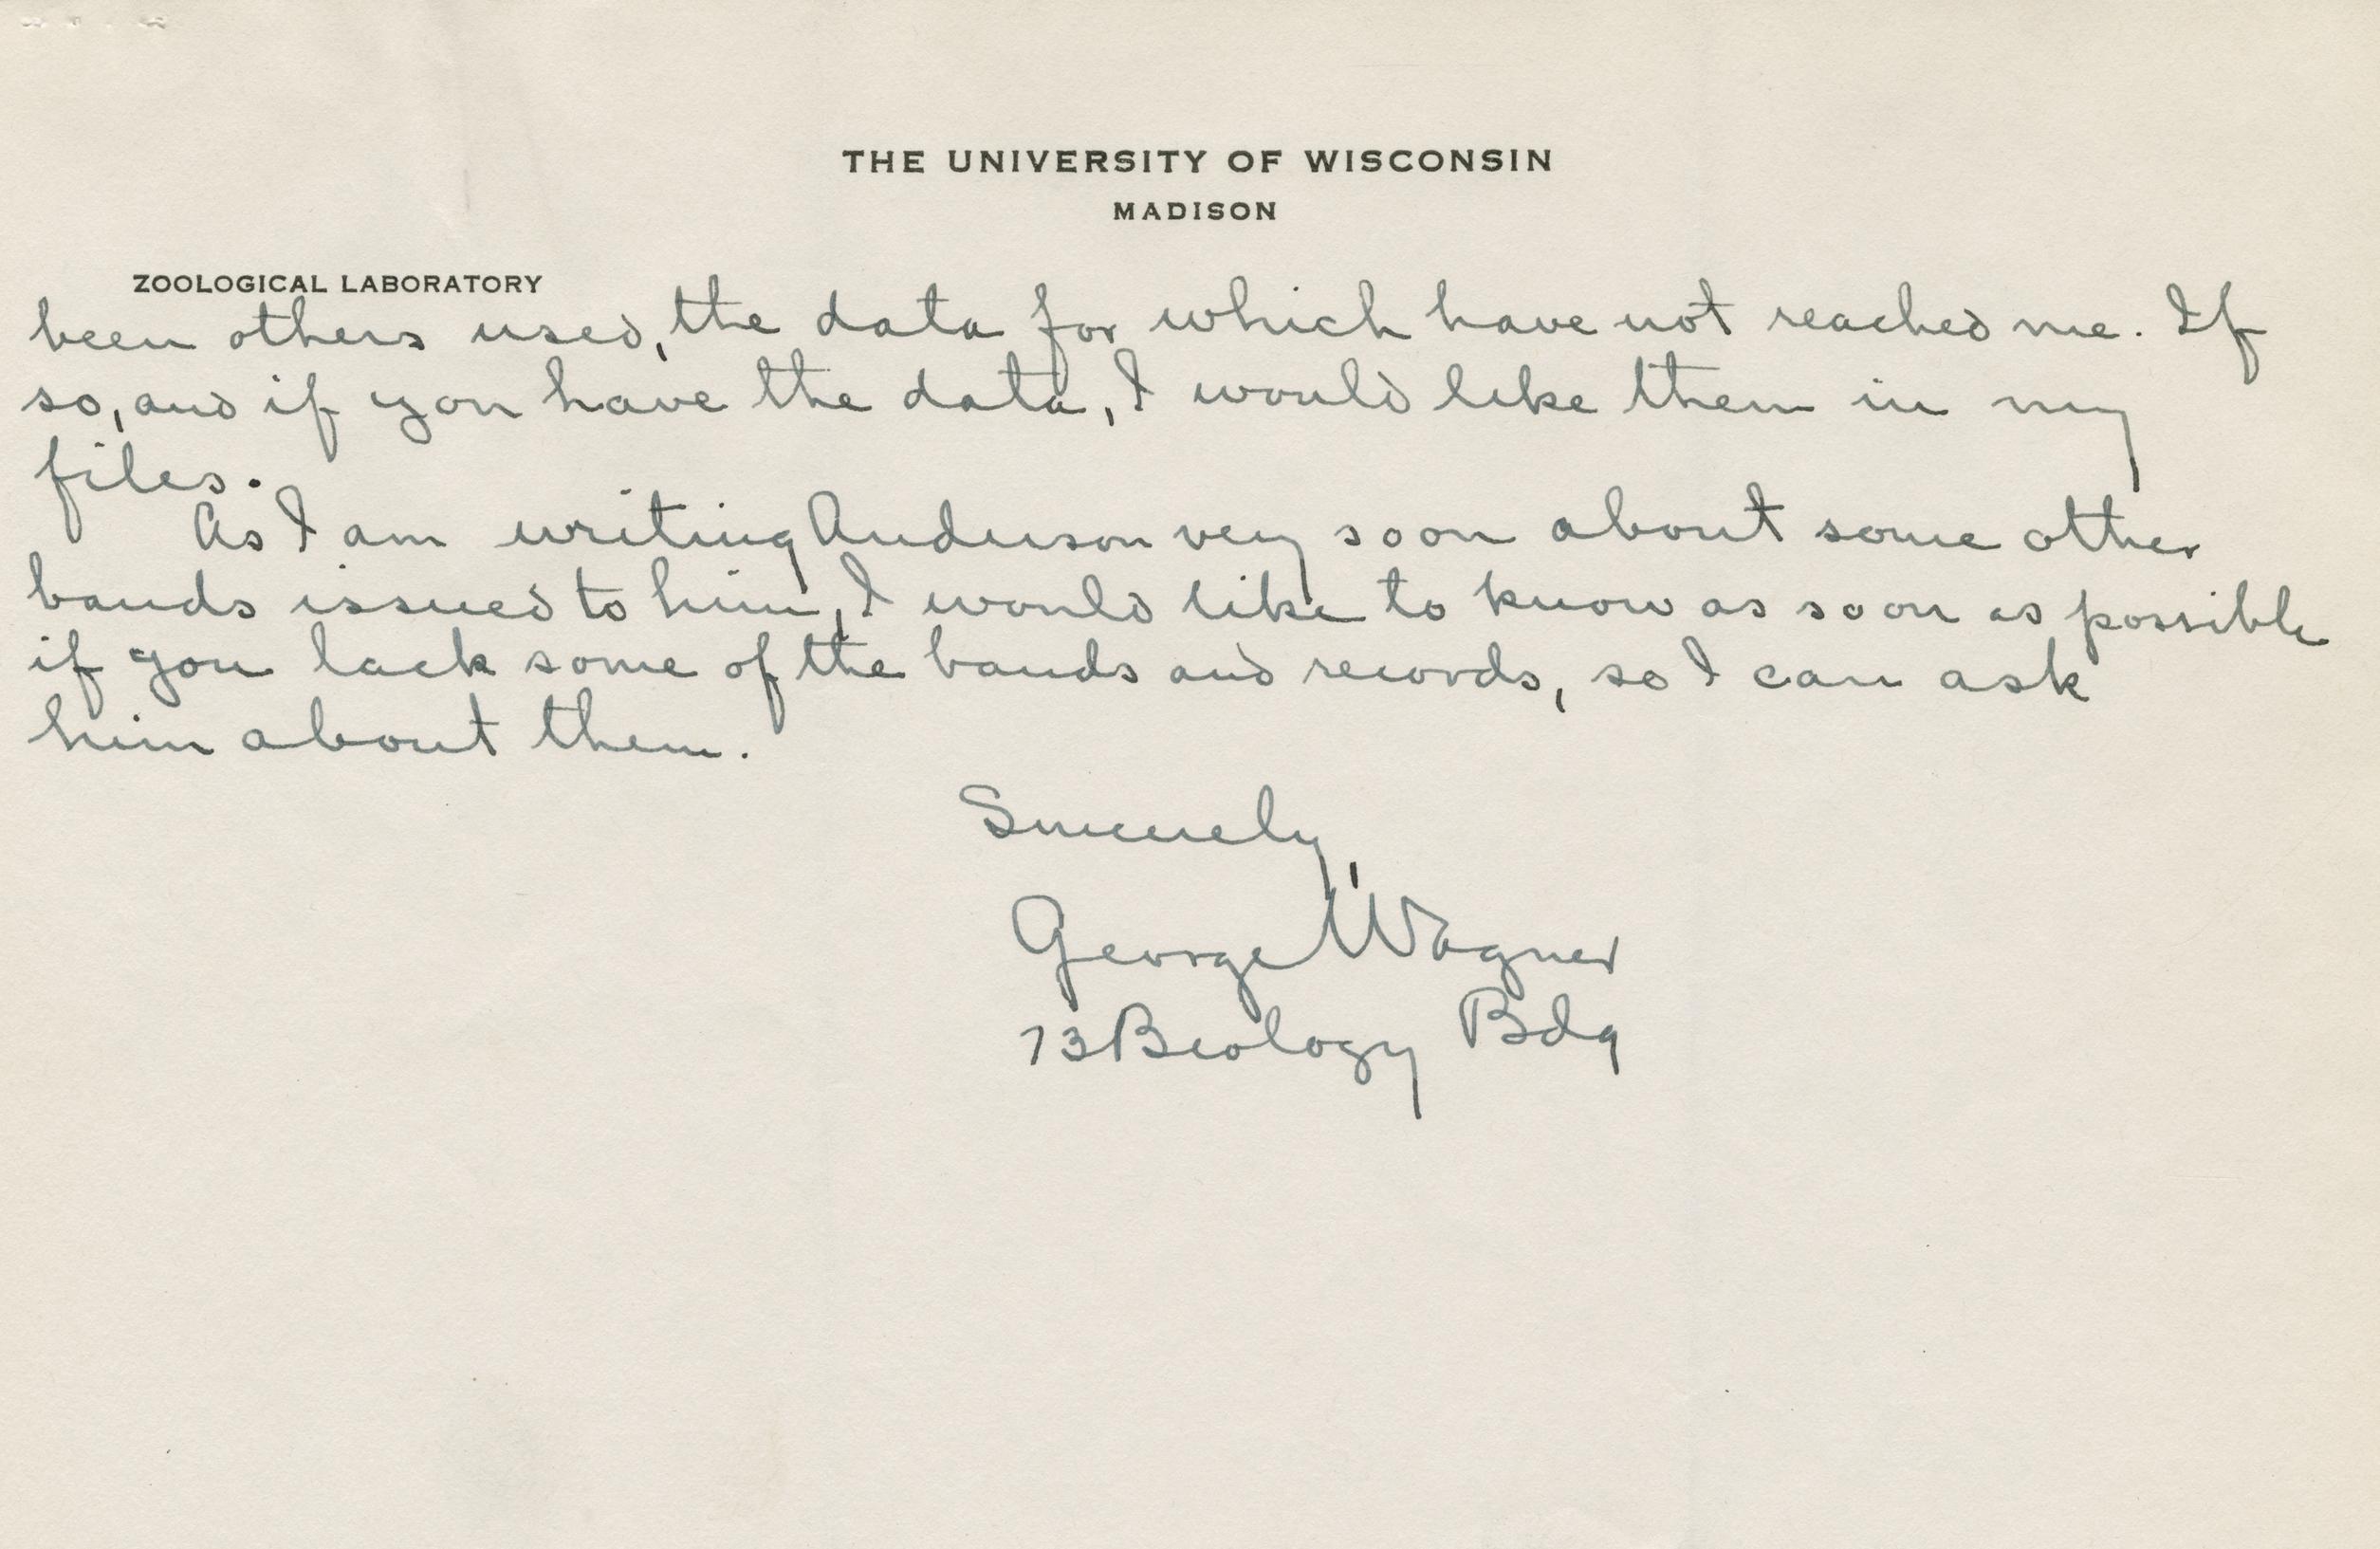 THE UNIVERSITY OF WISCONSIN
MADISON
ZOOLOGICAL LABORATORY
been others used, the data for which have not reached me. If
so, and if you have the data, I would like them in my
files.
As I am writing Anderson very soon about some other
bands issued to him, I would like to know as soon as possible
if you lack some of the bands and records, so I can ask
him about them.
Sincerely,
George Wagner
73 Biology Bdg